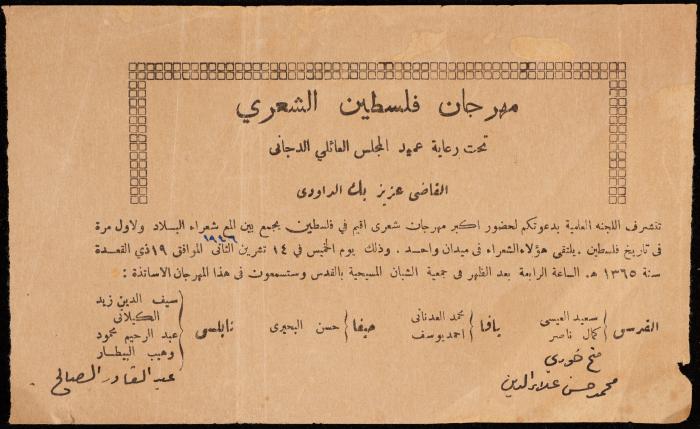 مهرجان فلسطين الشعري
تحت رعاية عميد المجلس العائلي الدجاني
القاضي عزيز بك الداودي
تتشرف اللجنة العلمية بدعوتكم لحضور اكبر مهرجان شعري اقيم في فلسطين يجمع بين المع شعراء البلاد ولاول مرة
في تاريخ فلسطين . يلتقي هؤلاء الشعراء في ميدان واحد . وذلك يوم الخميس في ١٤ تشرين الثاني ١٩٤٦ الموافق ١٩ ذي القعدة
سنة ١٣٦٥ هـ . الساعة الرابعة بعد الظهر في جمعية الشبان المسيحية بالقدس وستسمعون في هذا المهرجان الاساتذة :
القدس { سعيد العيسى كمال ناصر
يافا { محمد العدناني احمد يوسف
حيفا { حسن البحيري
نابلس { سيف الدين زيد الكيلاني عبد الرحيم محمود وهيب البيطار
فتح خوري
محمد حسن علاء الدين
عبد القادر الصالح